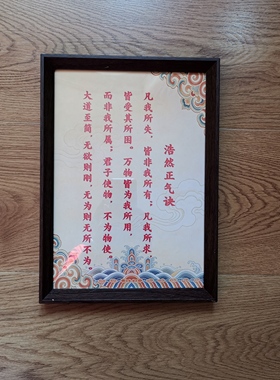 浩然正气诀
凡我所失，皆非我所有；凡我所求，
皆受其所困。万物皆为我所用，
而非我所属；君子使物，不为物使。
大道至简，无欲则刚，无为则无所不为。